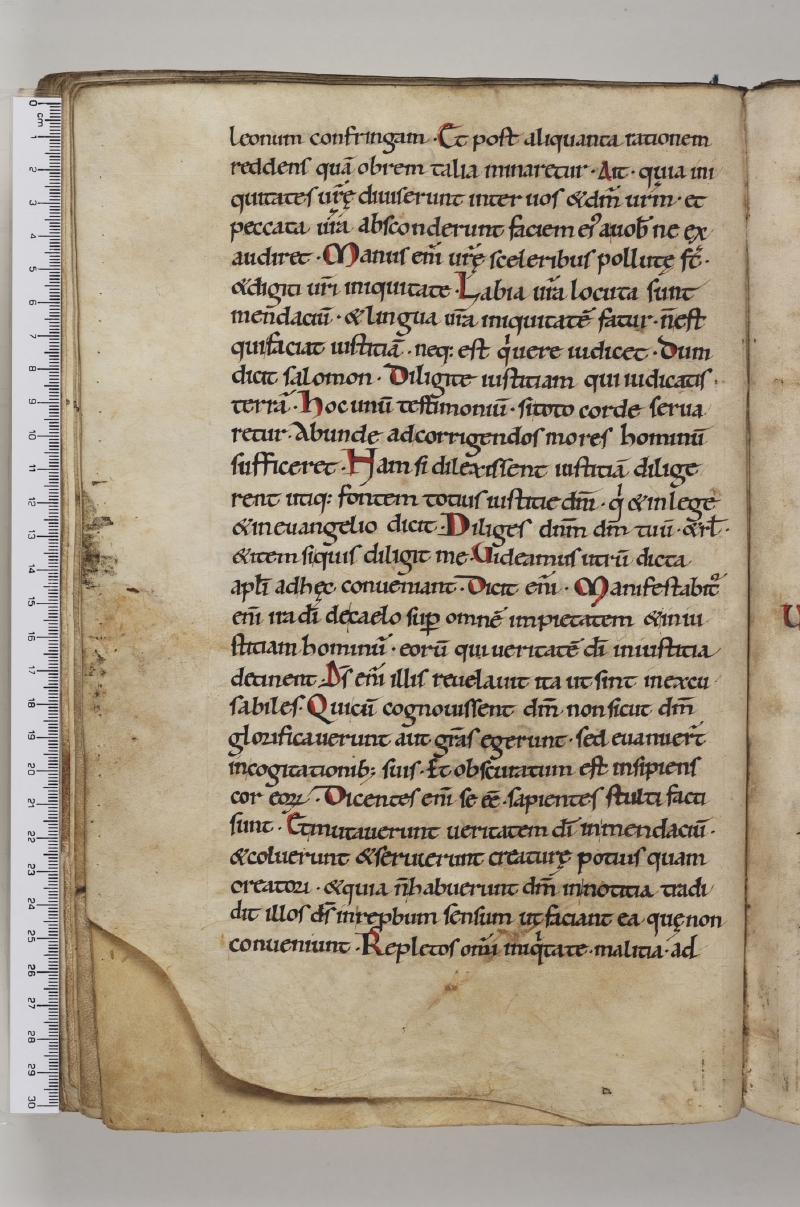 leonum confringam · Et post aliquanta rationem
reddens quā obrem talia minaretur · Ait · quia ini
quitates ur̄ę diuiserunt inter uos & dm̄ ur̄m · et
peccata ur̄a absconderunt faciem ei᾽ auob̄ ne ex
audiret · Manus em̄ ur̄ę sceleribus pollutę st̄ ·
& digiti ur̄i iniquitate · Labia ur̄a locuta sunt
mendaciū · & lingua ur̄a iniquitatē fatur · n̄ est
qui faciat iustitiā · neq; est q̍ uere iudicet · Dum
dicit salomon · Diligite iustitiam qui iudicatis ·
terrā · Hoc unū testimoniū · si toto corde serua
retur · Abunde ad corrigendos mores hominū
sufficeret · Nam si dilexissent iustitiā dilige
rent utiq; fontem totius iustitie dm̄ · q̍ & in lege
& in euangelio dicit · Diliges dnm̄ dm̄ tuū · & rl̄ ·
& item siquis diligit me · Uideamus utrū dicta
apl̄i ad hęc conueniant · Dicit em̄ · Manifestabit᾽
em̄ ira dī de caelo suꝑ omnē impietatem & iniu
stitiam hominū · eorū qui ueritatē dī in iustitia
detinent · Ds̄ em̄ illis reuelauit ita ut sint inexcu
sabiles · Qui cū cognouissent dm̄ non sicut dm̄
glorificauerunt aut gr̄as egerunt · sed euanuer̄t
in cogitationib; suis · Et obscuratum est insipiens
cor eoꝝ · Dicentes em̄ se eē · sapientes stulti facti
sunt · Et mutauerunt ueritatem dī in mendaciū ·
& coluerunt & seruierunt creaturę potius quam
creatori · & quia n̄ habuerunt dm̄ in notitia tradi
dit illos ds̄ in repbum sensum ut faciant ea quę non
conueniunt · Repletos om̄i iniq̍tate · malitia · ad
U